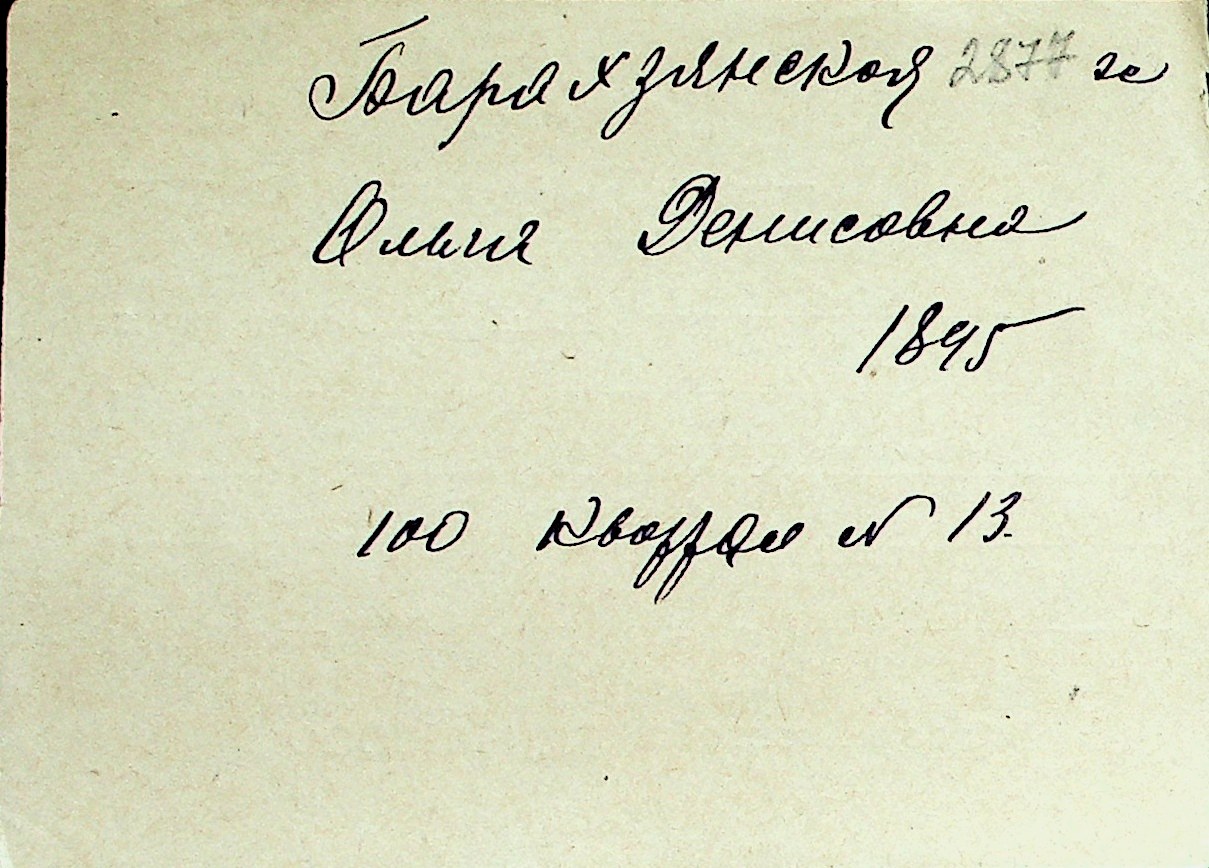 Барахзянская 2877 ж
Ольга Денисовна
1895
100 квартал № 13.